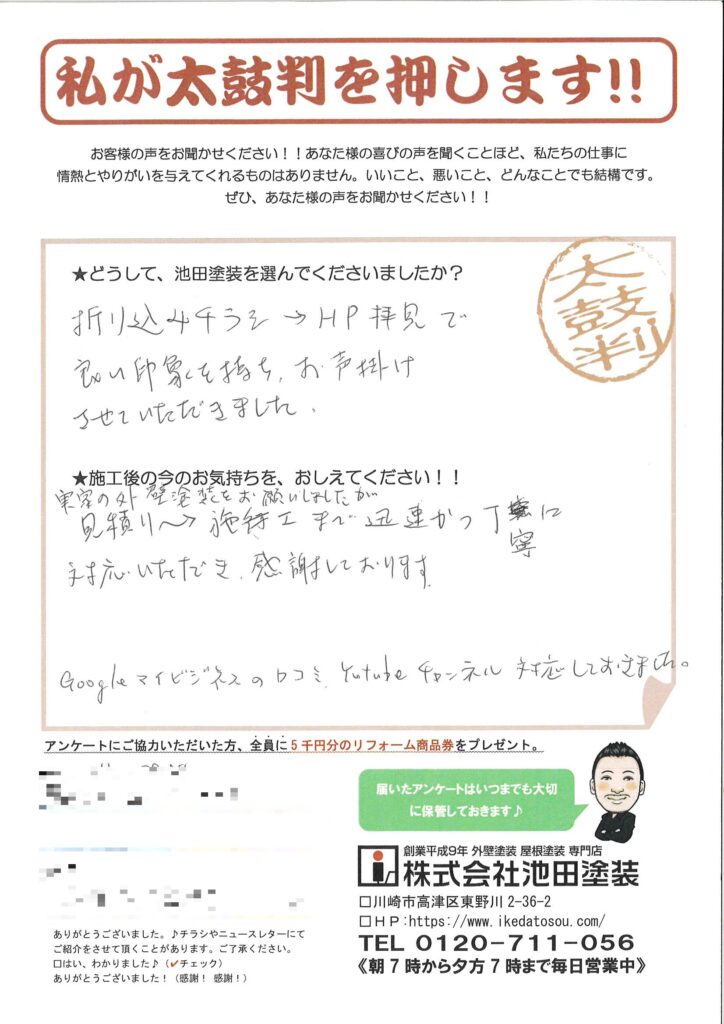 私が太鼓判を押します!!
お客様の声をお聞かせください！！あなた様の喜びの声を聞くことほど、私たちの仕事に
情熱とやりがいを与えてくれるものはありません。いいこと、悪いこと、どんなことでも結構です。
ぜひ、あなた様の声をお聞かせください！！
★どうして、池田塗装を選んでくださいましたか？
太鼓判
折り込みチラシ→HP拝見で
良い印象を持ち、お声掛け
させていただきました。
★施工後の今のお気持ちを、おしえてください！！
実家の外壁塗装をお願いしましたが
見積り〜→施工まで迅速かつ丁寧に
対応いただき、感謝しております。
Googleマイビジネスの口コミ、Yutubeチャンネル対応しておきました。
アンケートにご協力いただいた方、全員に5千円分のリフォーム商品券をプレゼント。
届いたアンケートはいつまでも大切
に保管しておきます♪
創業平成9年 外壁塗装 屋根塗装 専門店
株式会社池田塗装
□川崎市高津区東野川 2-36-2
□ＨＰ:https://www.ikedatosou.com/
TEL 0120-711-056
《朝７時から夕方７時まで毎日営業中》
ありがとうございました。♪チラシやニュースレターにて
ご紹介をさせて頂くことがあります。ご了承ください。
□はい、わかりました♪（✔チェック）
ありがとうございました！（感謝！ 感謝！）